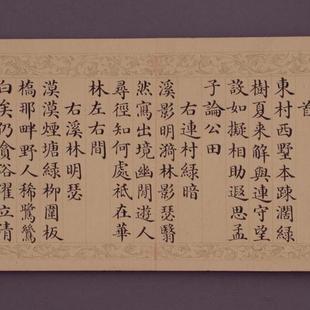 首
東村西墅本踈濶綠
樹夏来解與連守望
設如擬相助遐思孟
子論公田
右連村綠暗
溪影明漪林影瑟翳
然寫出境幽閒遊人
尋徑知何處秖在華
林左右間
右溪林明瑟
漠漠煙塘綠柳圍板
橋那畔野人稀鷺鷥
白矣仍貪浴濯立清